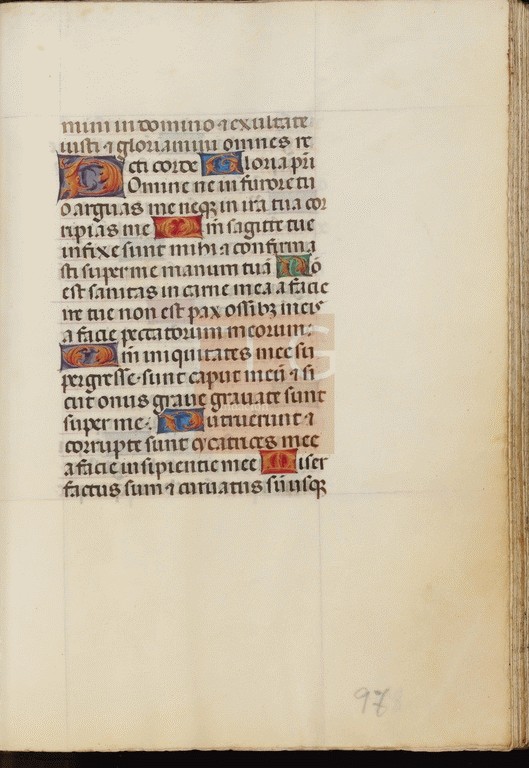 mini in domino ⁊ exultate
iusti ⁊ gloriamini omnes re
cti corde Gloria pri
Domine ne in furore tu
o arguas me neqꝫ in ira tua cor
ripias me Qm sagitte tue
infixe sunt mihi ⁊ confirma
sti super me manum tuā No
est sanitas in carne mea a facie
ire tue non est pax ossibꝫ meis
a facie peccatorum meorum:
Qm iniquitates mee su
pergresse sunt caput meū ⁊ si
cut onus graue grauate sunt
super me: Putruerunt ⁊
corrupte sunt cycatrices mee
a facie insipientie mee Miser
factus sum ⁊ curuatus sū usqꝫ
97